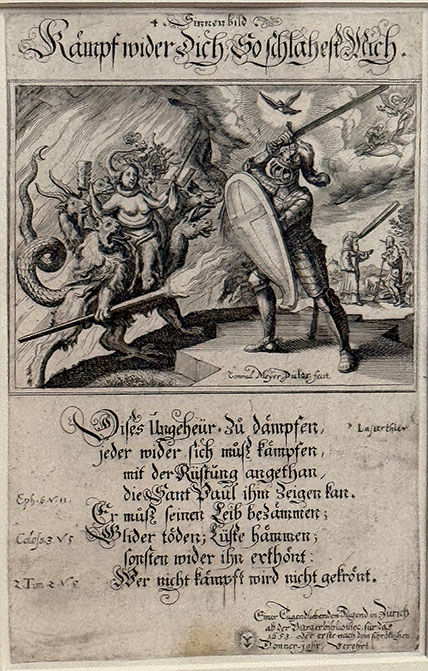 4. Sinnenbild
Kämpf wider Dich, So schlahest Mich.
Conrad Meyer Pictor fecit.
Dises Ungeheür zu dämpfen,
Lasterthier
jeder wider sich müß kämpfen,
mit der Rüstung angethan,
die Sant Paul ihm zeigen kan.
Eph. 6. v. 11.
Er müß seinen Leib bezämmen;
Glider töden; Lüste hämmen;
Coloss. 3. v. 5
sonsten wider ihn erthönt:
Wer nicht kämpft wird nicht gekrönt.
2. Tim. 2. v. 5
Einer Tugendliebenden Jugend in Zürich
ab der Burgerbibliothec, für das
1653. oder erste nach dem
Donner-jahr, verehrt.